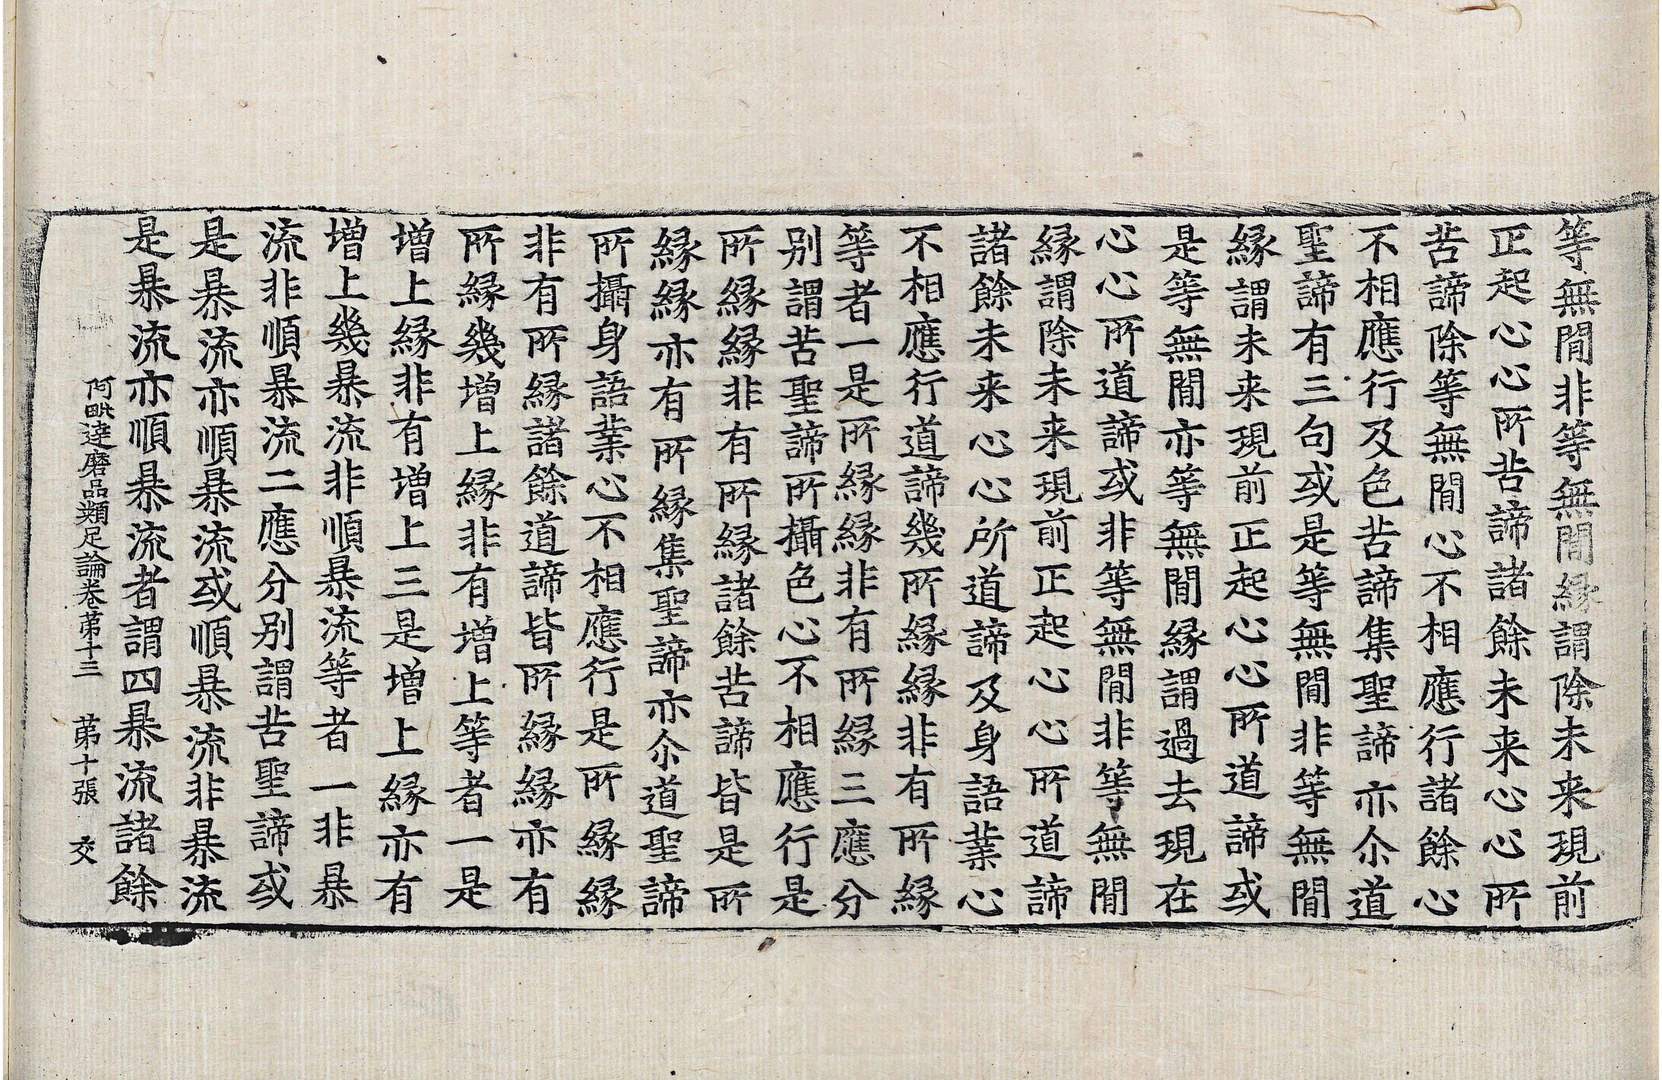 等無閒非等無閒縁謂除未来現前
正起心心所苦諦諸餘未来心心所
苦諦除等無閒心不相應行諸餘心
不相應行及色苦諦集聖諦亦尒道
聖諦有三句或是等無閒非等無閒
縁謂未来現前正起心心所道諦或
是等無閒亦等無閒縁謂過去現在
心心所道諦或非等無閒非等無閒
縁謂除未来現前正起心心所道諦
諸餘未来心心所道諦及身語業心
不相應行道諦幾所縁縁非有所縁
等者一是所縁縁非有所縁三應分
别謂苦聖諦所攝色心不相應行是
所縁縁非有所縁諸餘苦諦皆是所
縁縁亦有所縁集聖諦亦尒道聖諦
所攝身語業心不相應行是所縁縁
非有所縁諸餘道諦皆所縁縁亦有
所縁幾增上縁非有增上等者一是
增上縁非有增上三是增上縁亦有
增上幾暴流非順暴流等者一非暴
流非順暴流二應分别謂苦聖諦或
是暴流亦順暴流或順暴流非暴流
是暴流亦順暴流者謂四暴流諸餘
阿毗達磨品類足論卷苐十三 苐十張 交